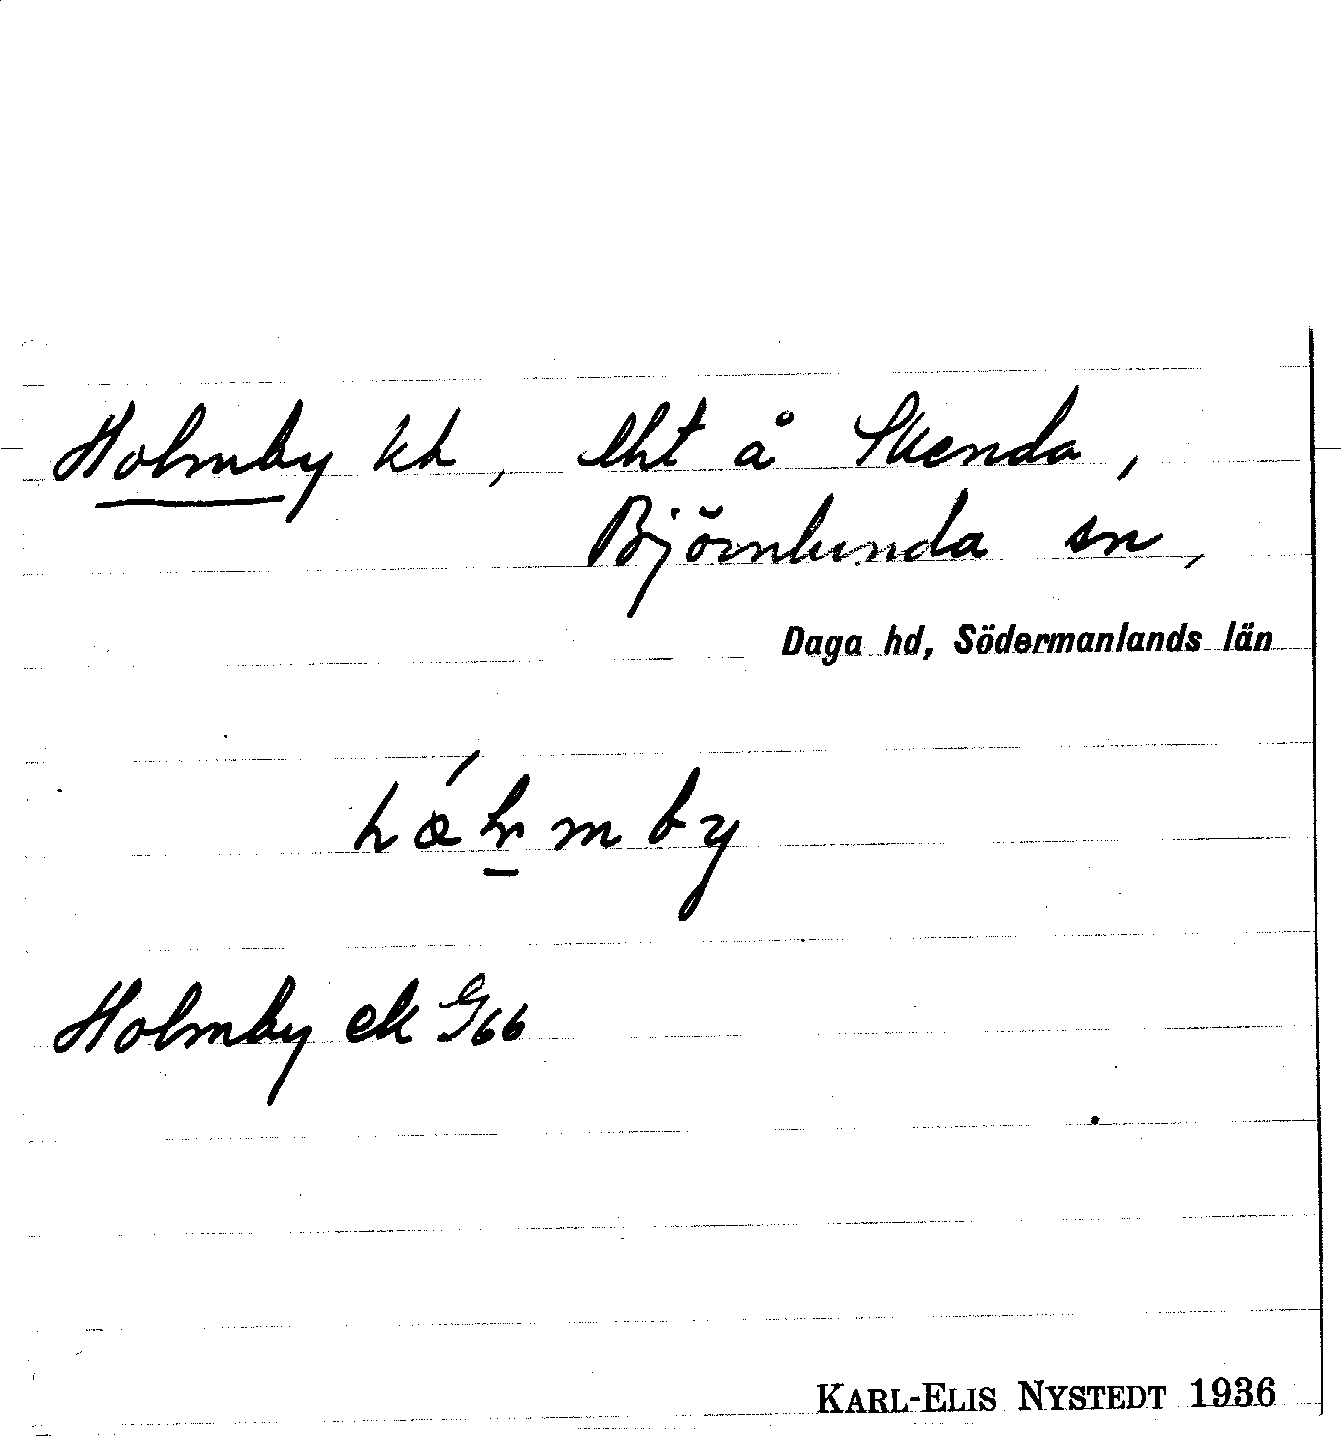 Holmby kh, lht å Skenda,
Björnlunda sn,
Daga hd, Södermanlands län
Holmby ek G66
KARL-ELIS NYSTEDT 1936